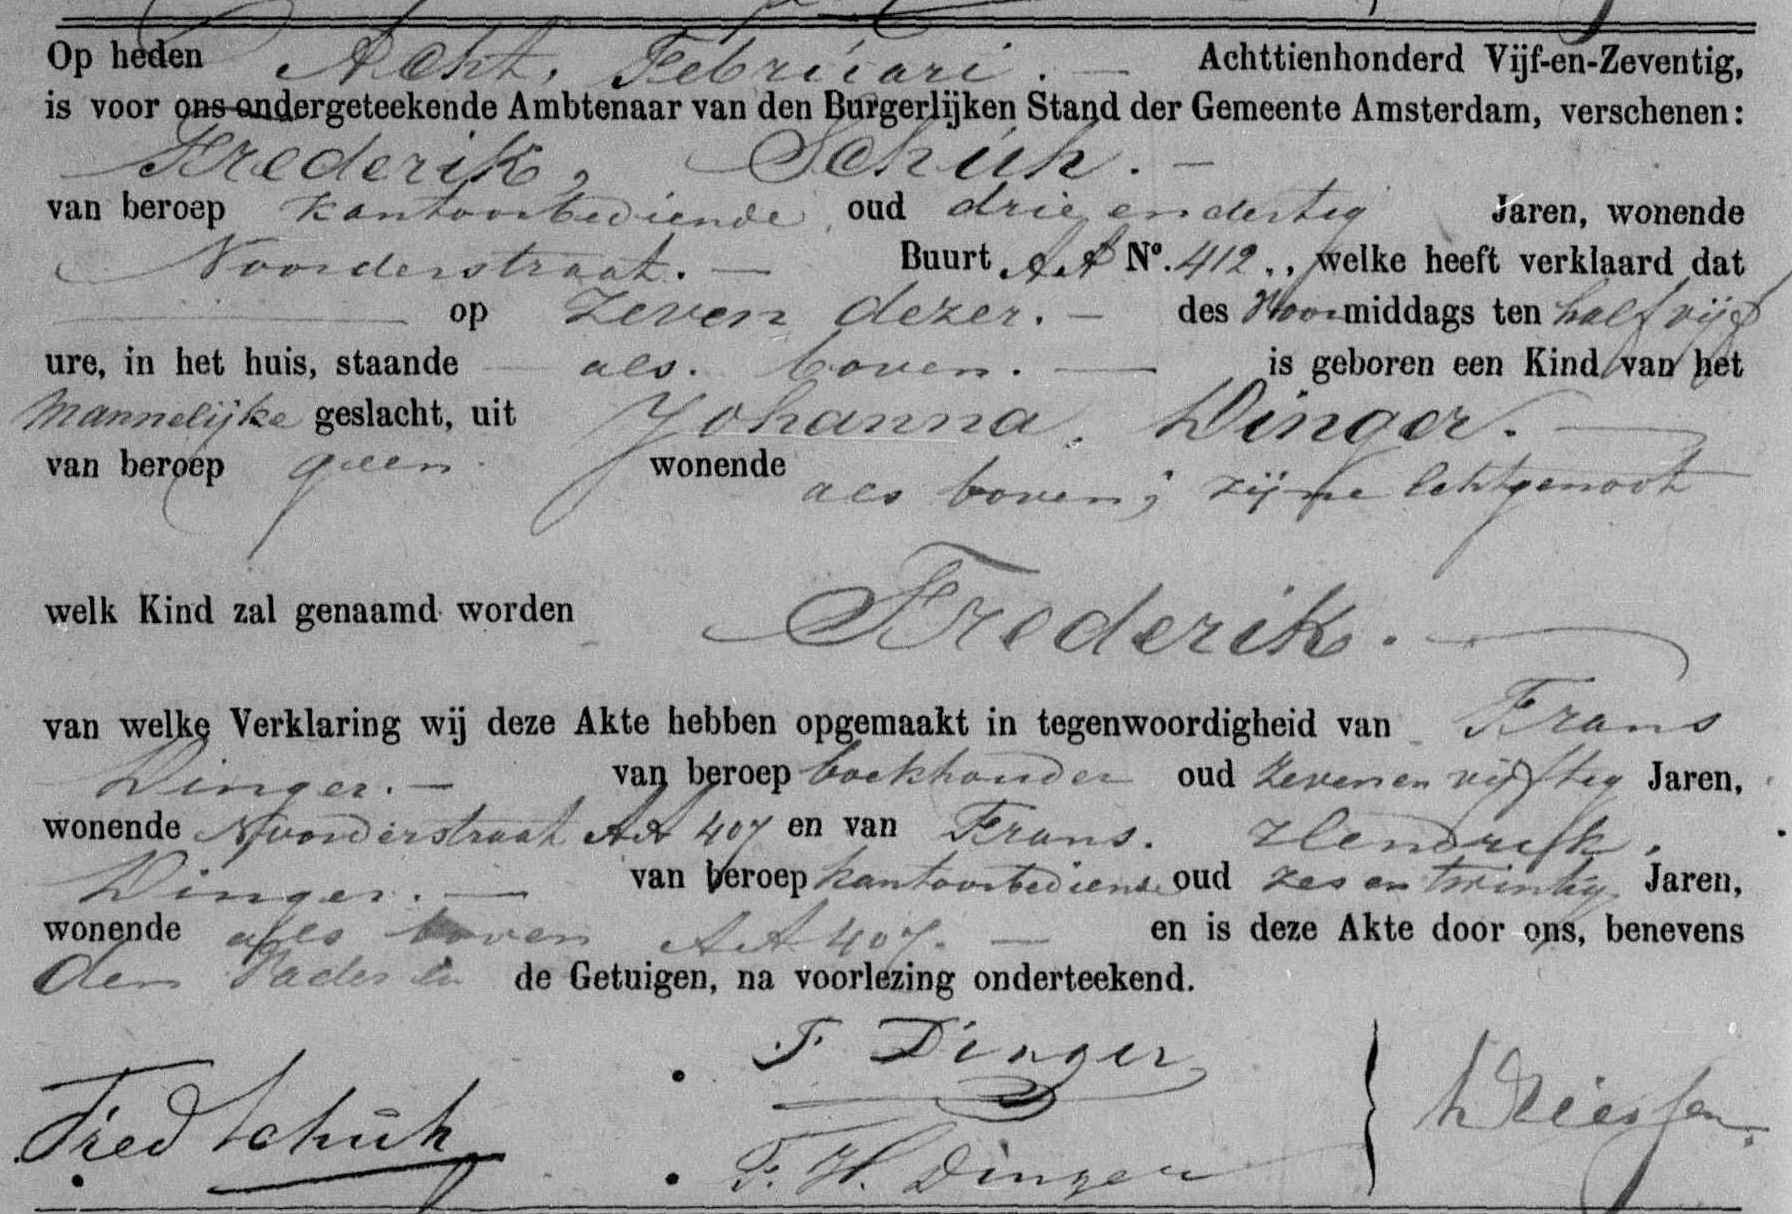 Op heden Acht, Februari. — Achttienhonderd Vijf-en-Zeventig,
is voor ons ondergeteekende Ambtenaar van den Burgerlijken Stand der Gemeente Amsterdam, verschenen:
Frederik, Schüh. —
van beroep kantoorbediende, oud drie en dertig Jaren, wonende
Noorderstraat. — Buurt AA No. 412., welke heeft verklaard dat
— op Zeven dezer. — des Voormiddags ten half vijf
ure, in het huis, staande — als boven. — is geboren een Kind van het
Mannelijke geslacht, uit Johanna, Dinger. —
van beroep geen. wonende als boven; zijne Echtgenoot
welk Kind zal genaamd worden Frederik. —
van welke Verklaring wij deze Akte hebben opgemaakt in tegenwoordigheid van Frans
Dinger. — van beroep boekhouder oud zeven en vijftig Jaren,
wonende Noorderstraat AA 407 en van Frans. Hendrik,
Dinger. — van beroep kantoorbediende oud zes en twintig Jaren,
wonende als boven AA 407. — en is deze Akte door ons, benevens
den Vader en de Getuigen, na voorlezing onderteekend.
F Dinger
Fred Schüh
F. H. Dinger